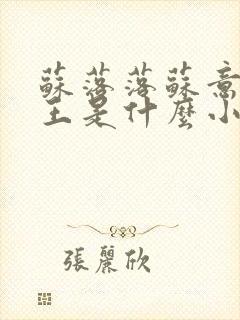 蘇落落蘇意
主是什麼小
張麗欣